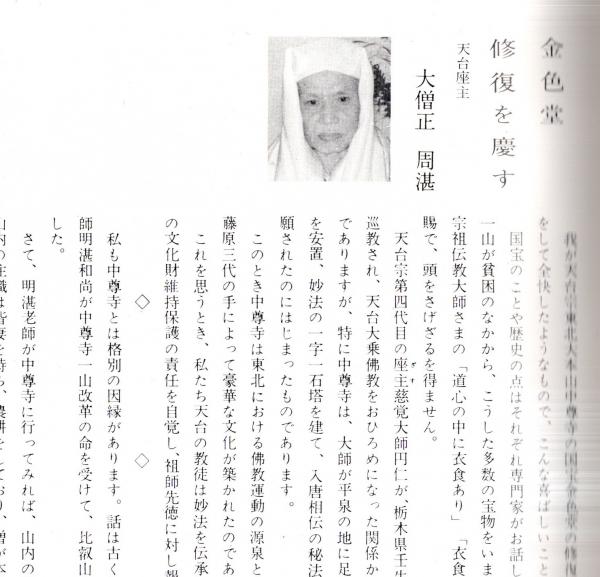 金色堂
修復を慶す
天台座主
大僧正 周湛
我が天台宗東北大本山中尊寺の国宝金色堂の修復
をして全快したようなもので、こんな喜ばしいこと
国宝のことや歴史の点はそれぞれ専門家がお話し
一山が貧困のなかから、こうした多数の宝物をいま
宗祖伝教大師さまの「道心の中に衣食あり」「衣食
賜で、頭をさげざるを得ません。
天台宗第四代目の座主慈覚大師円仁が、栃木県壬生
巡教され、天台大乗佛教をおひろめになった関係か
でありますが、特に中尊寺は、大師が平泉の地に足
を安置、妙法の一字一石塔を建て、入唐相伝の秘法
願されたのにはじまったものであります。
このとき中尊寺は東北における佛教運動の源泉と
藤原三代の手によって豪華な文化が築かれたのであ
これを思うとき、私たち天台の教徒は妙法を伝承
の文化財維持保護の責任を自覚し、祖師先徳に対し報
◇ ◇
私も中尊寺とは格別の因縁があります。話は古く
師明湛和尚が中尊寺一山改革の命を受けて、比叡山
した。
さて、明湛老師が中尊寺に行ってみれば、山内の
山内の住職は皆妻を持ち、農耕をしており、僧が本